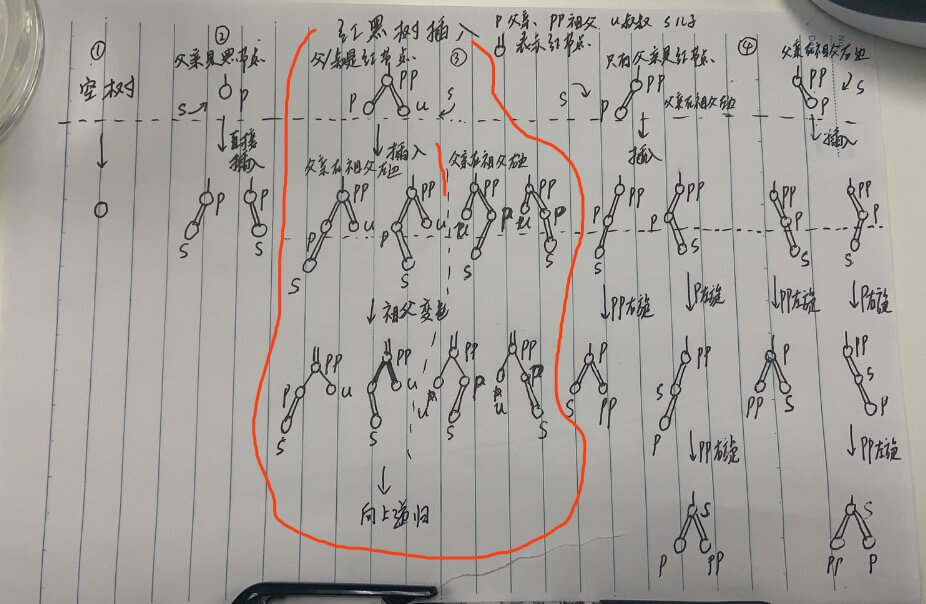 红黑树插入
P父亲、PP祖父 u叔叔 S儿子
表示红节点.
①
空树
②
父亲是黑节点
P
S
直接
插入
P
S
P
S
父/叔是红节点.
③
PP
P
u
S
插入
父亲在祖父左边
父亲在祖父右边
PP
P
u
S
PP
P
u
S
PP
P
u
S
PP
P
u
S
祖父变色
PP
P
u
S
PP
u
S
PP
u
P
S
PP
P
u
S
向上递归
只有父亲是红节点.
PP
S
P
父亲在祖父左边
插入
PP
P
S
PP
P
S
PP右旋
P左旋
P
S
PP
PP
S
P
PP右旋
S
P
PP
④
父亲在祖父右边
PP
P
S
插入
PP
P
S
PP
P
S
PP左旋
P右旋
P
PP
S
PP
S
P
PP左旋
S
PP
P